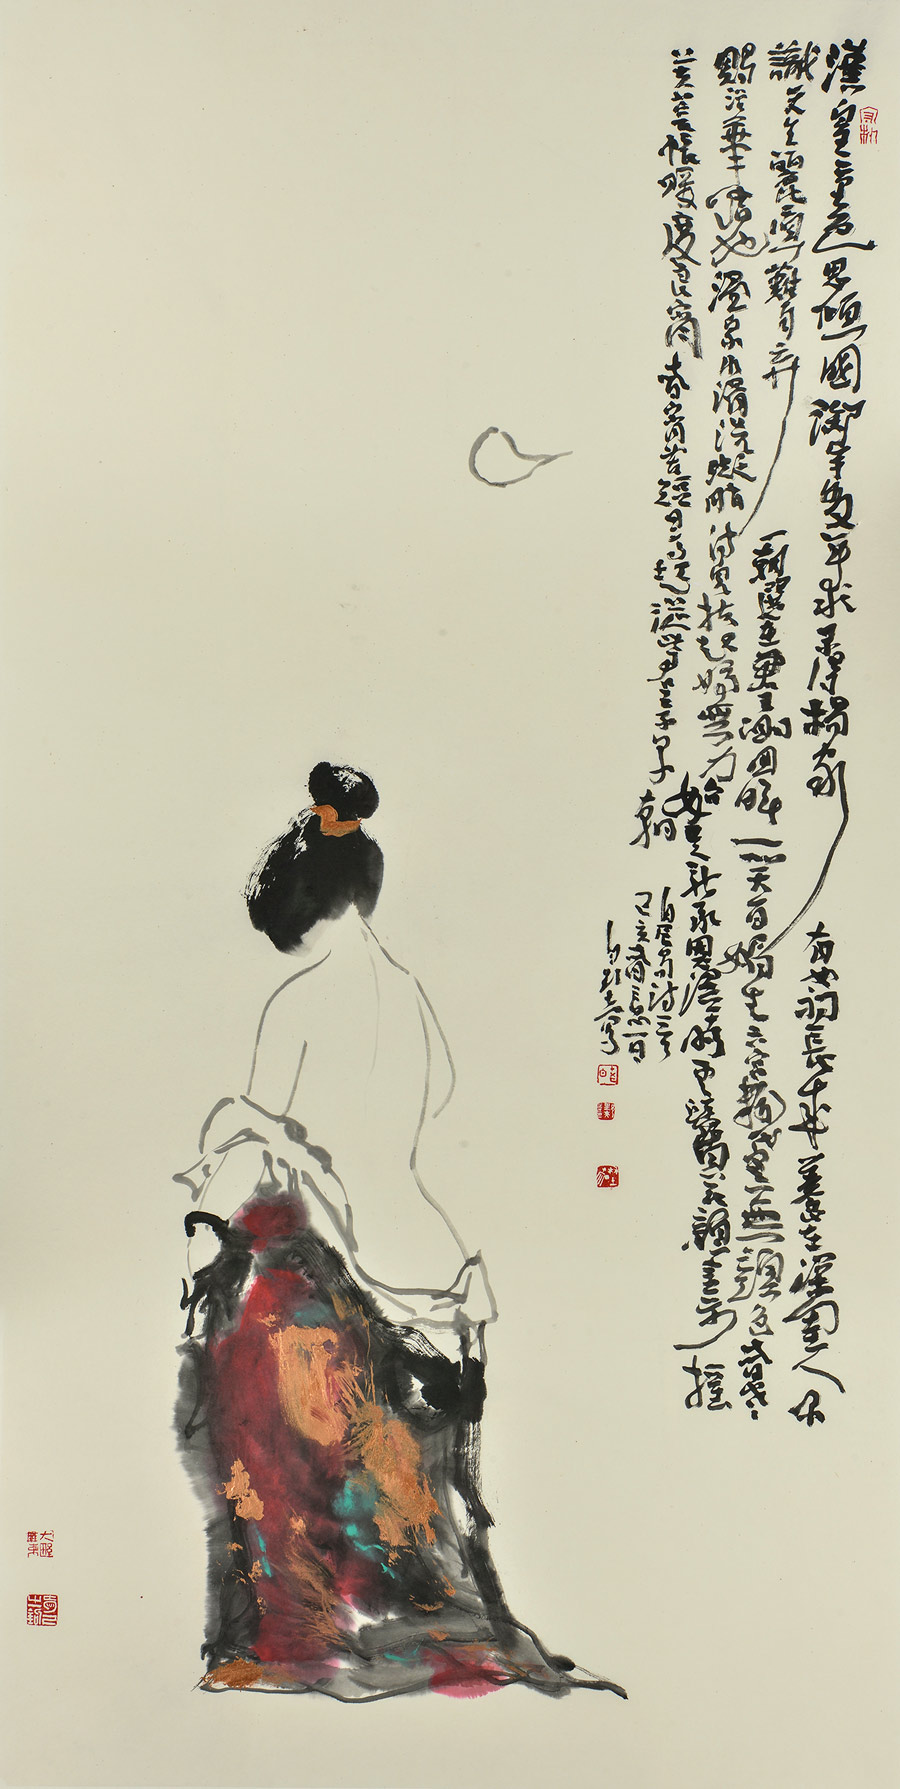 漢皇重色思傾國御宇多年求不得楊家有女初長成養在深閨人不
識天生麗質難自棄一朝選在君王側回眸一笑百媚生六宮粉黛無顏色春寒
賜浴華清池溫泉水滑洗凝脂侍兒扶起嬌無力始是新承恩澤時雲鬢花顏金步搖
芙蓉帳暖度良宵春宵苦短日高起從此君王不早朝
白居易詩
己亥春一日